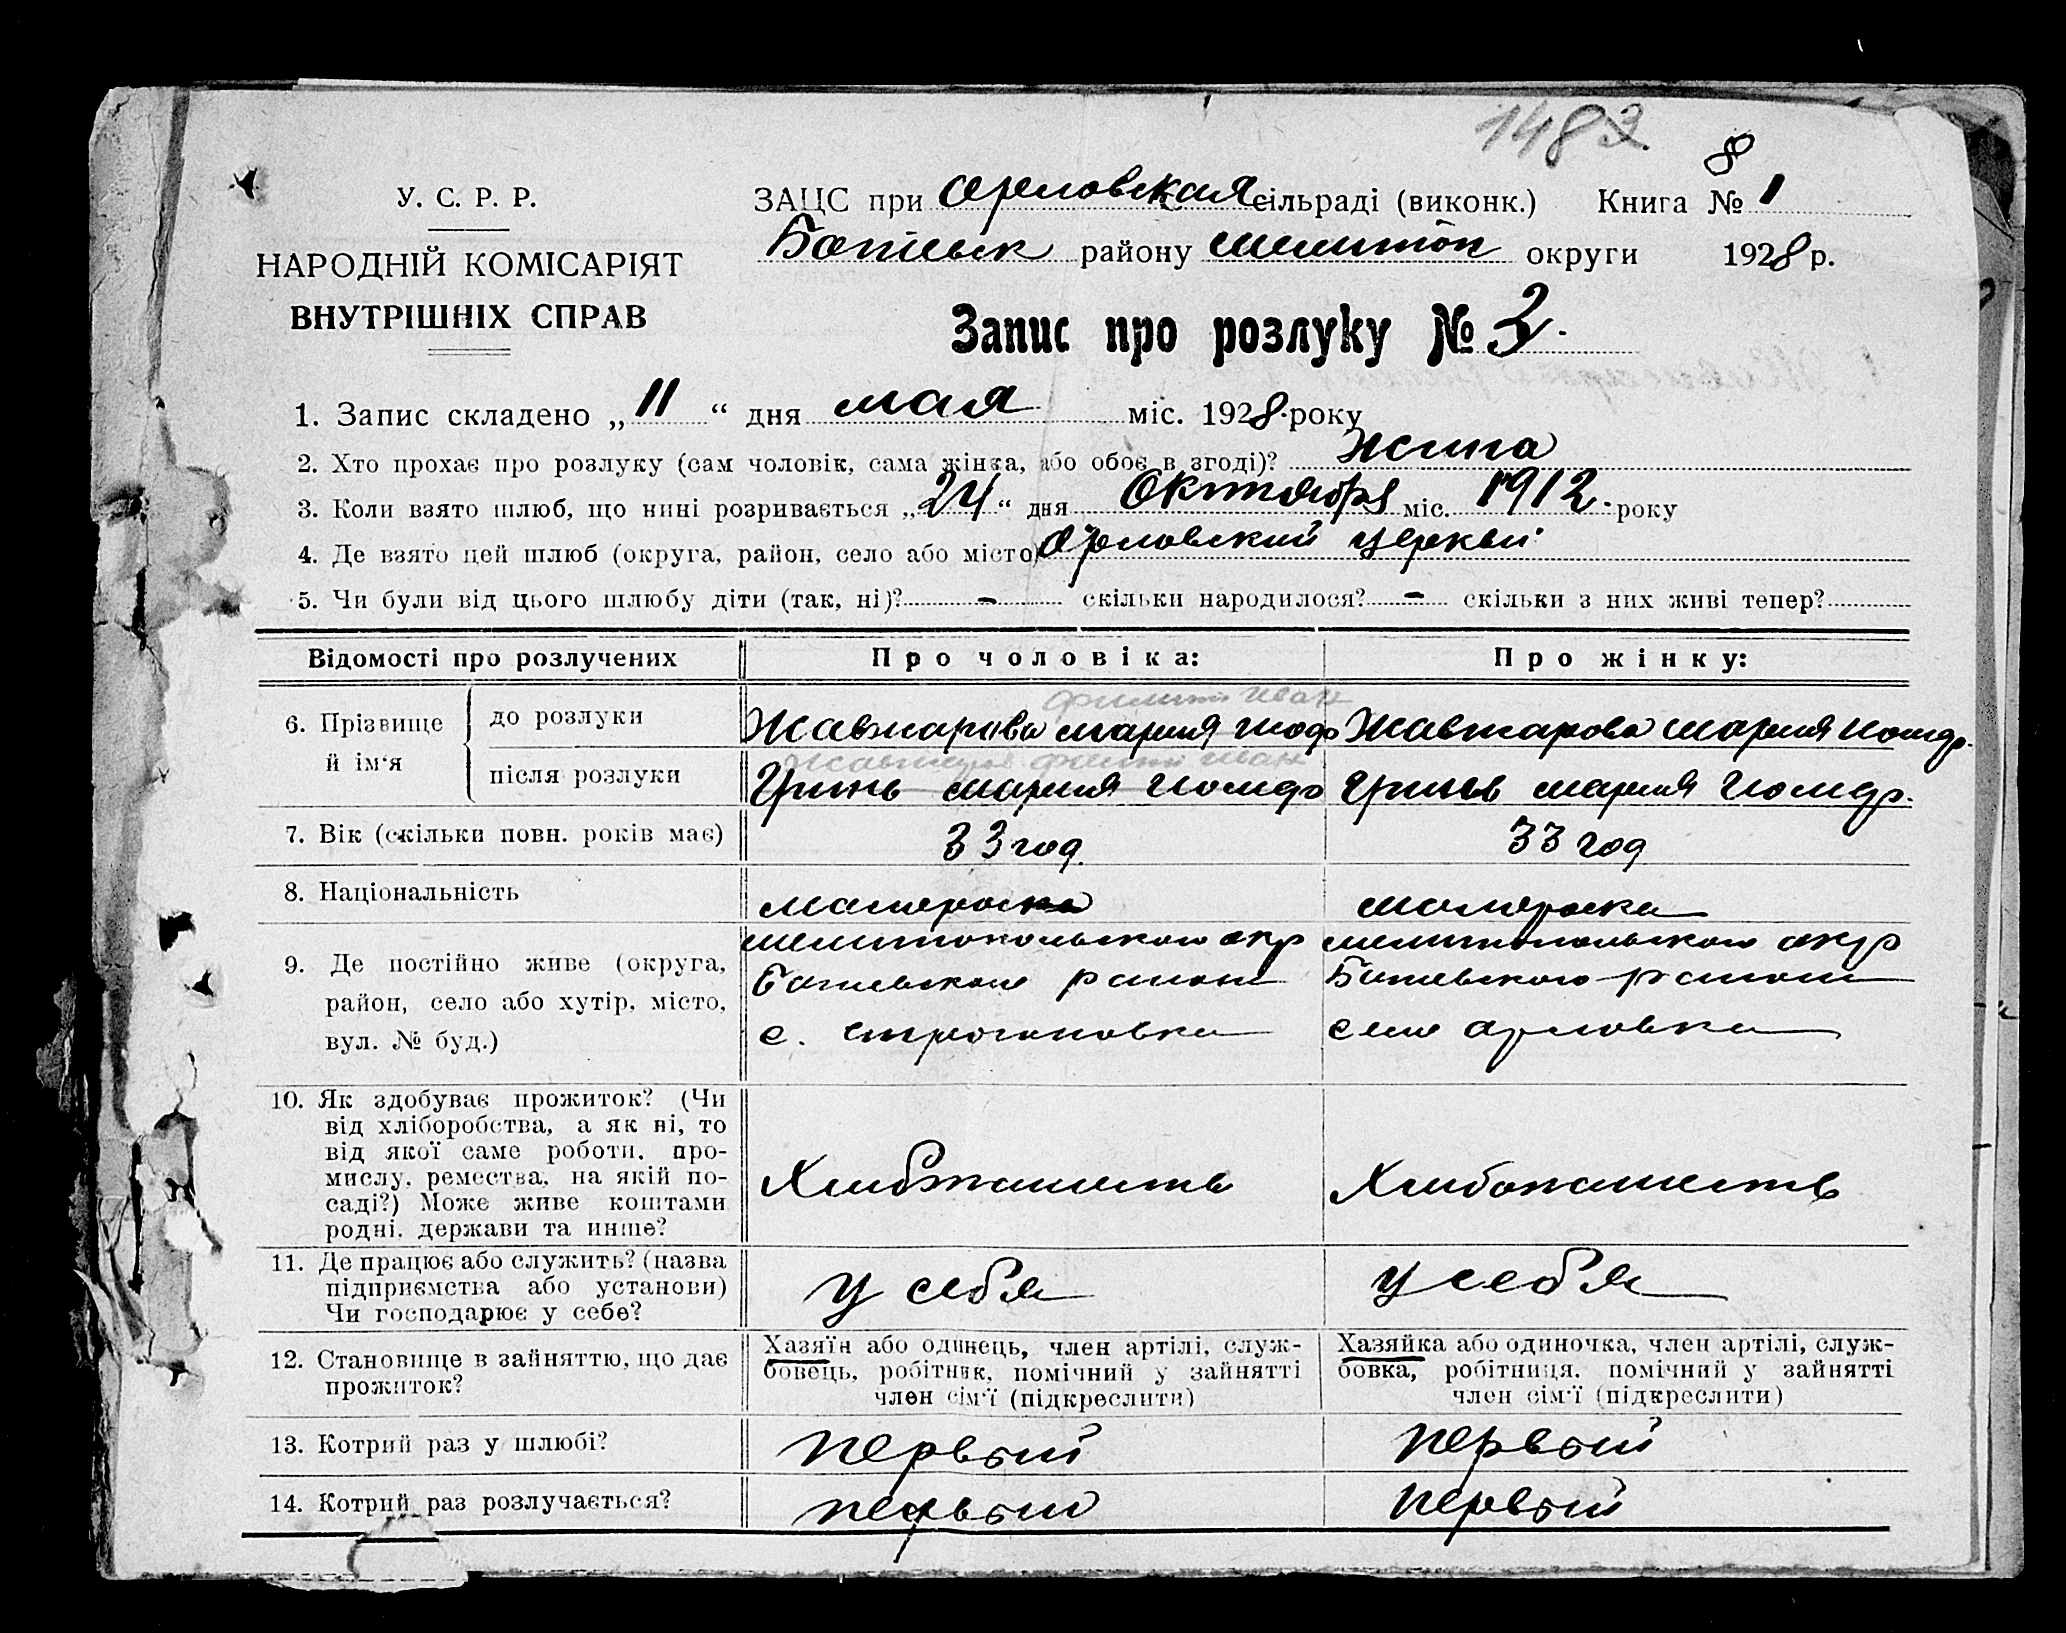 1483
8
У. С. Р. Р.
НАРОДНІЙ КОМІСАРІЯТ
ВНУТРІШНІХ СПРАВ
ЗАЦС при Орловская сільраді (виконк.) Книга № 1
району Мелитоп округи 1928 р.
Запис про розлуку № 3.
1. Запис складено „ 11 “ дня мая міс. 1928 року
2. Хто прохає про розлуку (сам чоловік, сама жінка, або обоє в згоді)?
3. Коли взято шлюб, що нині розривається „ 24 “ дня Октября міс. 1912. року
4. Де взято цей шлюб (округа, район, село або місто) Орловский церкви
5. Чи були від цього шлюбу діти (так, ні)? – скільки народилося? – скільки з них живі тепер?
Відомості про розлучених Про чоловіка: Про жінку:
Филип Иван
6. Прізвище й ім'я до розлуки Жавжарова мария Жавжарова мария
Филип Иван
після розлуки Гринь мария Гринь мария
7. Вік (скільки повн. років має) 33 год. 33 год
8. Національність малороска малороска
9. Де постійно живе (округа, мелитопольского окр мелитопольского окр
район, село або хутір, місто, района района
вул. № буд.) с. строгановка село орловка
10. Як здобуває прожиток? (Чи
від хліборобства, а як ні, то
від якої саме роботи, про-
мислу, ремества, на якій по-
саді?) Може живе коштами
родні, держави та инше?
Хлибопашеств Хлибопашеств
11. Де працює або служить? (назва
підприємства або установи)
Чи господарює у себе?
у себя у себя
12. Становище в зайняттю, що дає
прожиток?
Хазяїн або одинець, член артілі, служ-
бовець, робітник, помічний у зайнятті
член сім'ї (підкреслити)
Хазяйка або одиночка, член артілі, служ-
бовка, робітниця, помічний у зайнятті
член сім'ї (підкреслити)
13. Котрий раз у шлюбі? первый первый
14. Котрий раз розлучається? первый первый